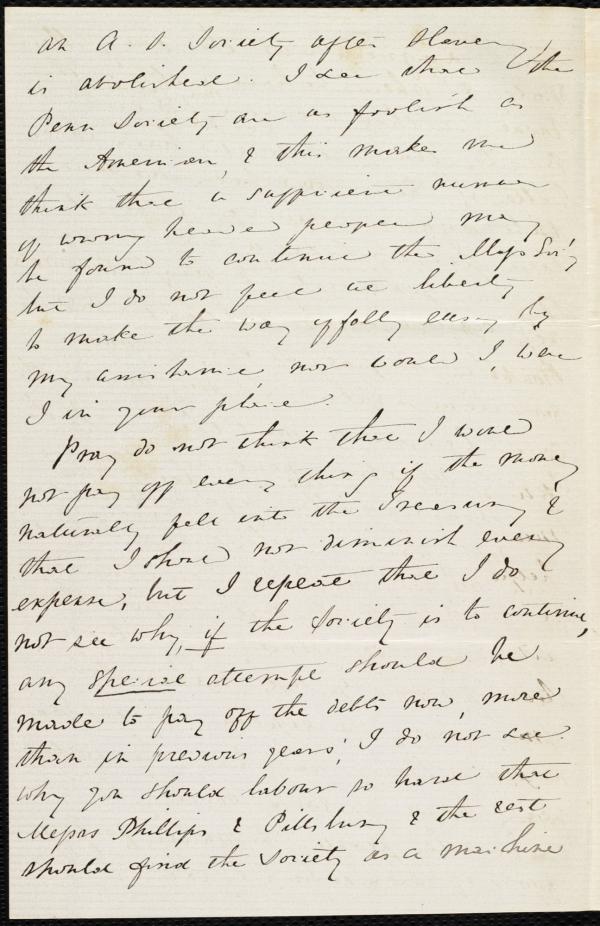 an A. S. Society after Slavery
is abolished. I see that the
Penn Society are as foolish as
the American, & this makes me
think that a sufficient number
of wrong headed people may
be found to continue the Mass Soc'y
but I do not feel at liberty
to make the way of folly easy by
my assistance, nor would I, were
I in your place.
Pray do not think that I would
not pay off every thing if the money
naturally fell into the Treasury &
that I should not diminish every
expense, but I repeat that I do
not see why, if the Society is to continue,
any special attempt should be
made to pay off the debts now, more
than in previous years; I do not see
why you should labour so hard that
Messrs Phillips & Pillsbury & the rest
should find the Society as a machine